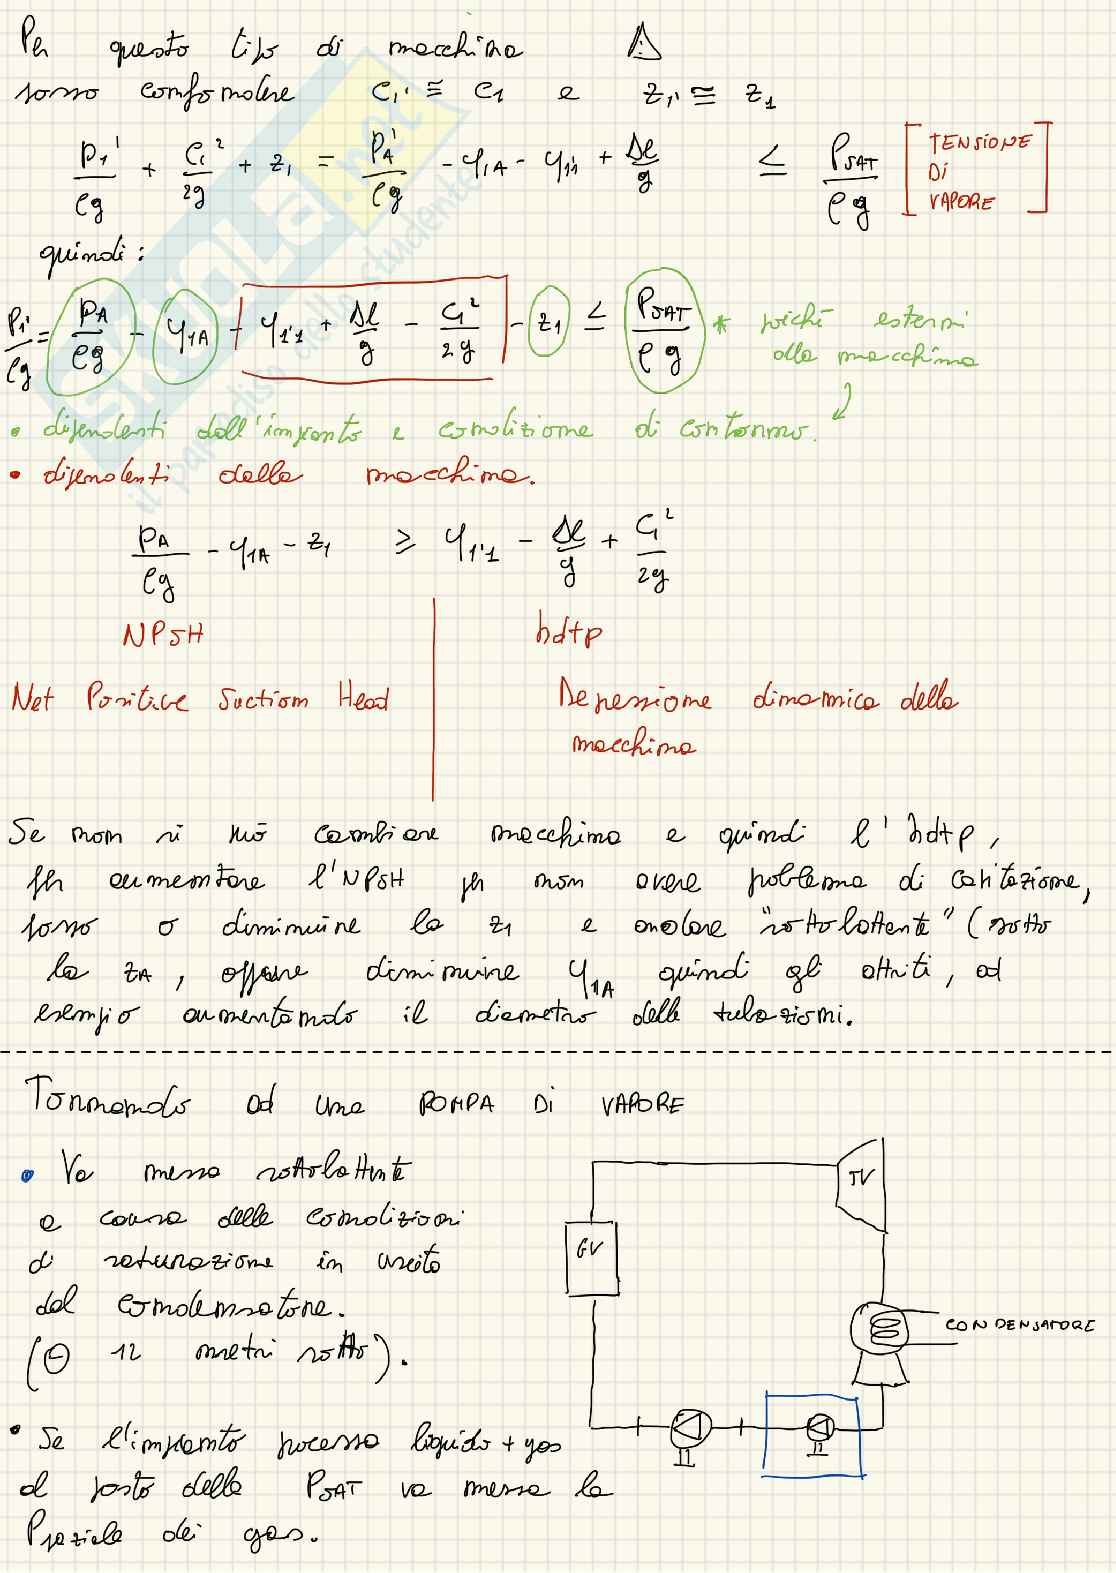 Per questo tipo di macchina ⚠
posso confondere C₁' ≅ C₁ e z₁' ≅ z₁
p₁'/ρg + C₁²/2g + z₁ = p_A'/ρg - φ₁A - φ₁'₁ + Δl/g ≤ p_SAT/ρg [TENSIONE DI VAPORE]
quindi:
p₁'/ρg = p_A/ρg - φ₁A - φ₁'₁ + Δl/g - C₁²/2g - z₁ ≤ p_SAT/ρg * poiché esterni
alla macchina
• dipendenti dall'impianto e condizione di contorno.
• dipendenti dalla macchina.
p_A/ρg - φ₁A - z₁ ≥ φ₁'₁ - Δl/g + C₁²/2g
NPSH hdtp
Net Positive Suction Head Depressione dinamica della
macchina
Se non si può cambiare macchina e quindi l'hdtp,
per aumentare l'NPSH per non avere problema di cavitazione,
posso o diminuire la z₁ e andare "sottobattente" (sotto
la z_A, oppure diminuire φ₁A quindi gli attriti, ad
esempio aumentando il diametro delle tubazioni.
Tornando ad una POMPA DI VAPORE
• Va messa sottobattente
a causa delle condizioni
di saturazione in uscita
dal condensatore.
(⊖ 12 metri sotto).
• Se l'impianto processa liquido + gas
al posto della P_SAT va messa la
P parziale dei gas.
TV
GV
CONDENSATORE
SKUOLA.net
il paradiso dello studente